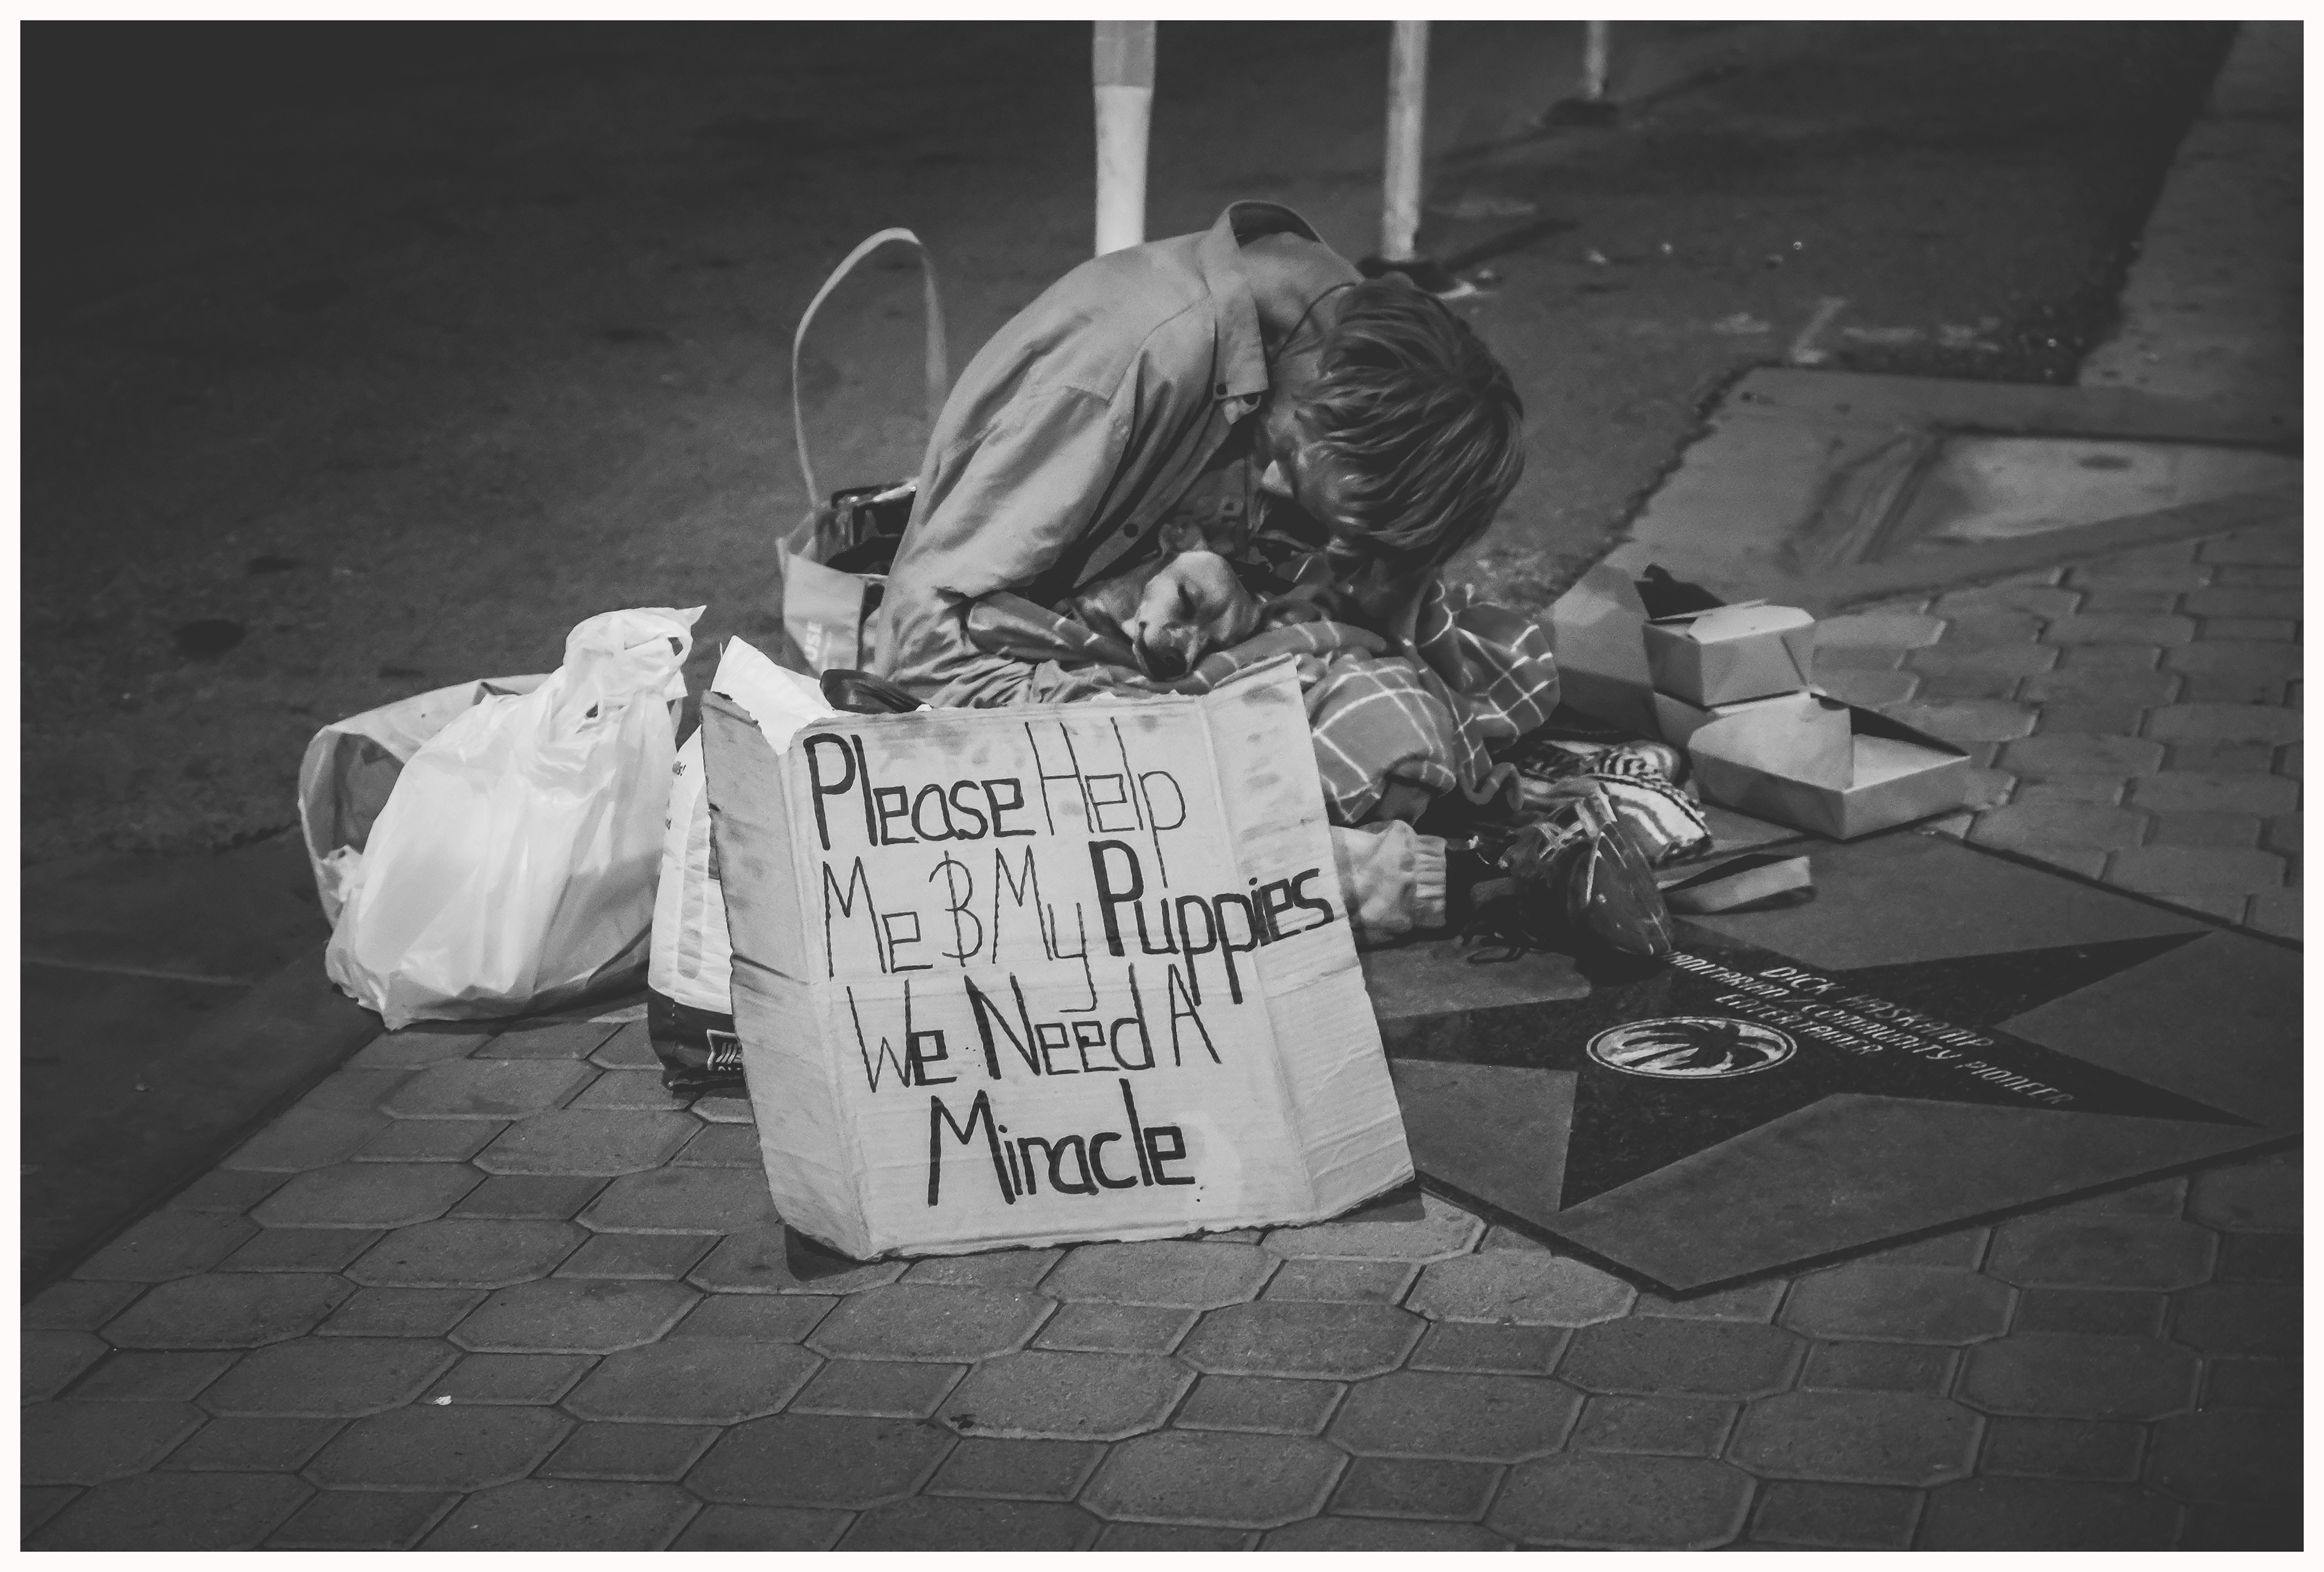 Please Help
Me & My Puppies
We Need A
Miracle
DICK HASKAMP
ANITARIAN / COMMUNITY PIONEER
ENTERTAINER
USE